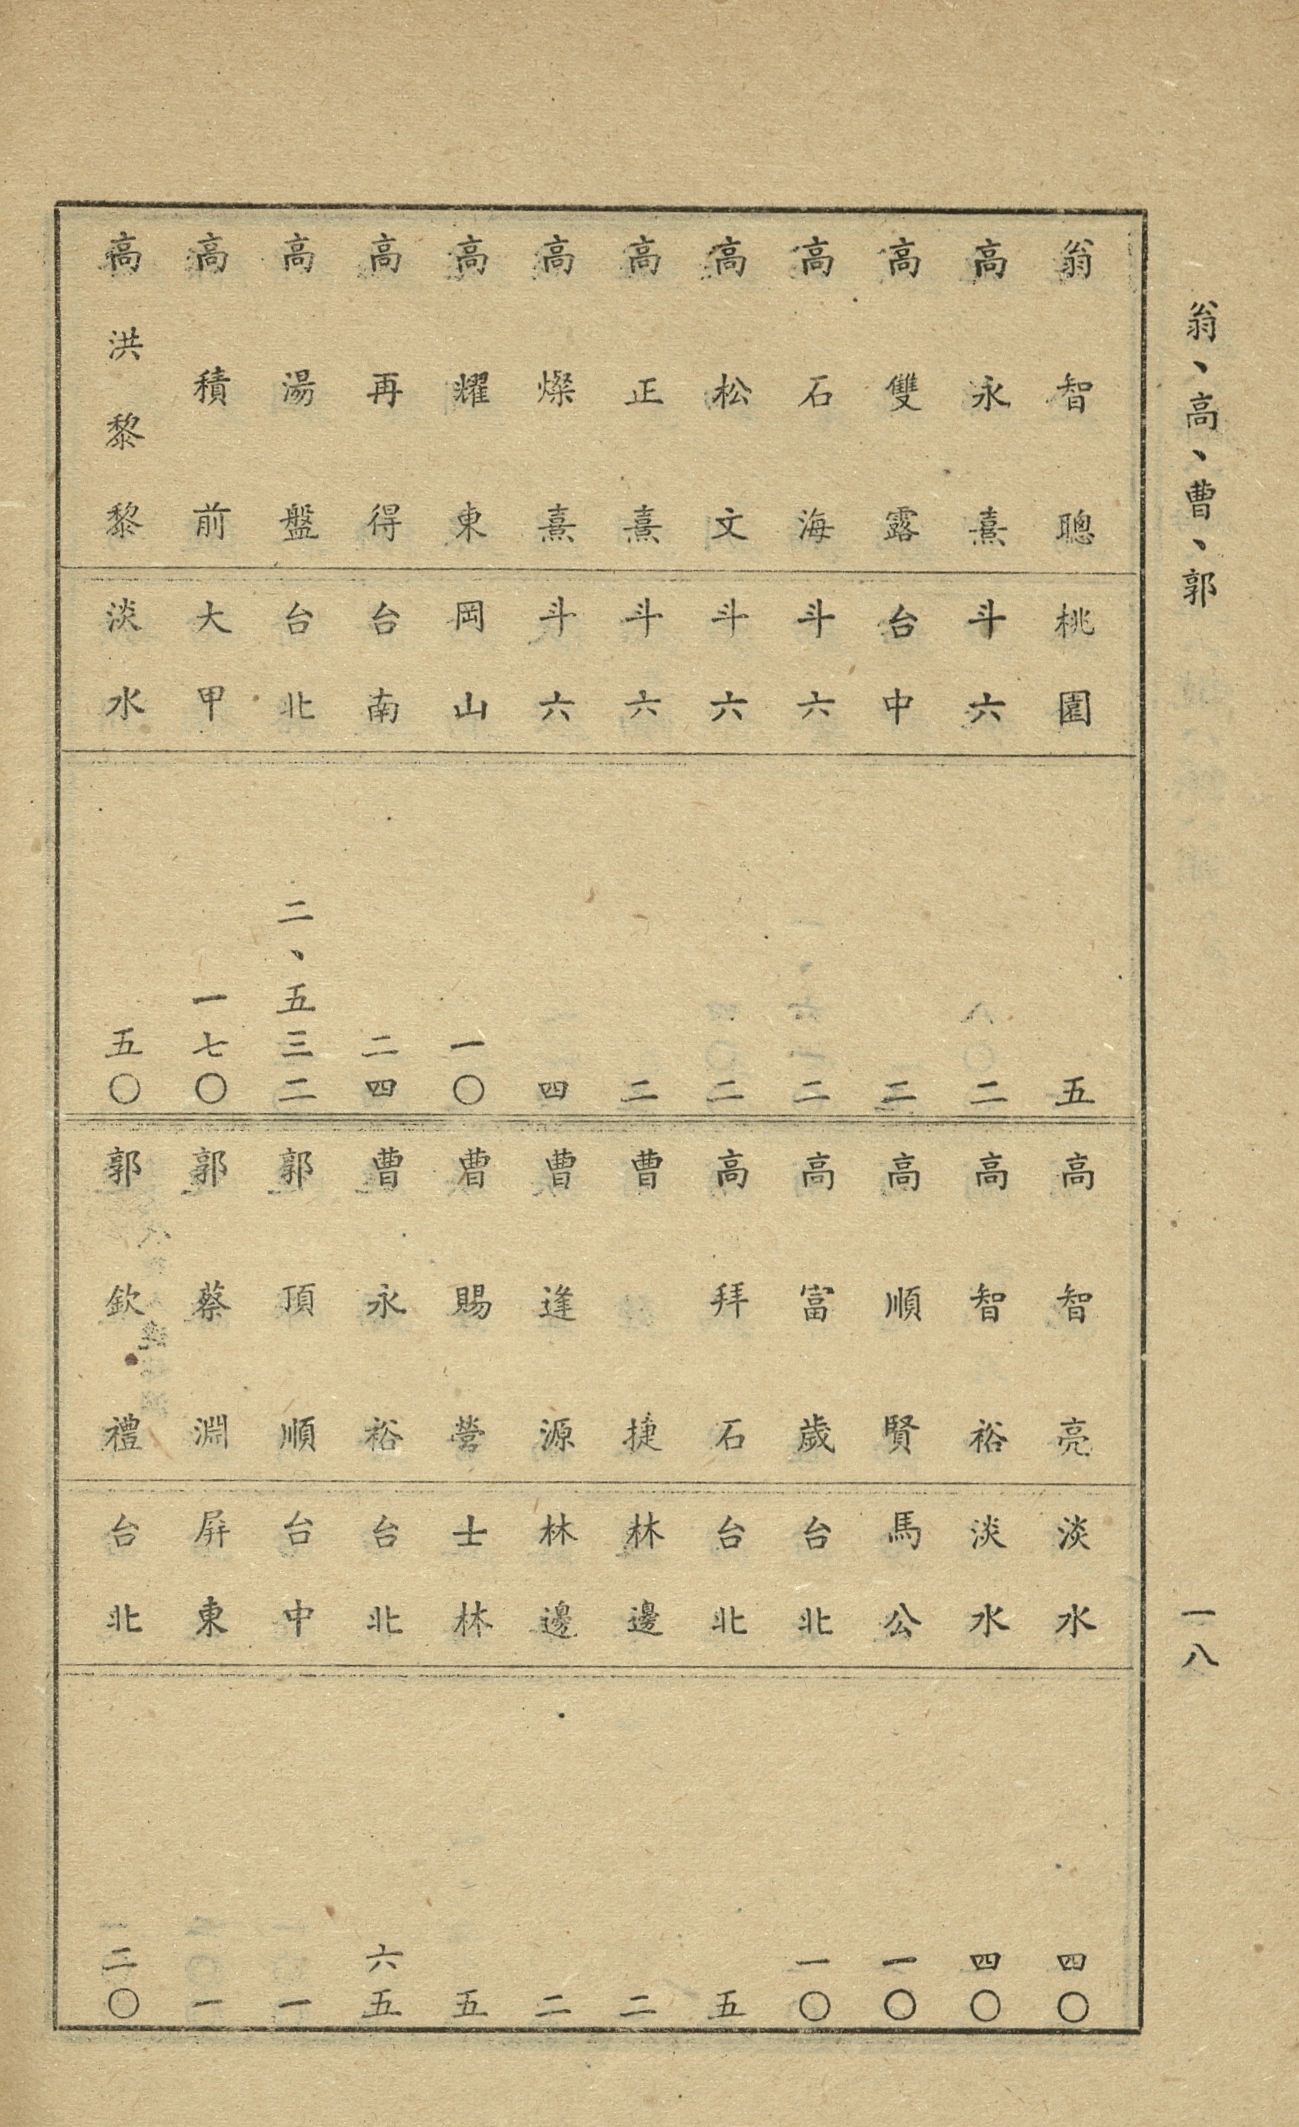 翁、高、曹、郭
一八
翁智聰 桃園 五
高永熹 斗六 二
高雙露 台中 二
高石海 斗六 二
高松文 斗六 二
高正熹 斗六 二
高燦熹 斗六 四
高耀東 岡山 一〇
高再得 台南 二四
高湯盤 台北 二、五三二
高積前 大甲 一七〇
高洪黎黎 淡水 五〇
高智亮 淡水 四〇
高智裕 淡水 四〇
高順賢 馬公 一〇
高富歲 台北 一〇
高拜石 台北 五
曹捷 林邊 二
曹逢源 林邊 二
曹賜營 士林 五
曹永裕 台北 六五
郭頂順 台中 一
郭蔡淵 屏東 一
郭欽禮 台北 二〇